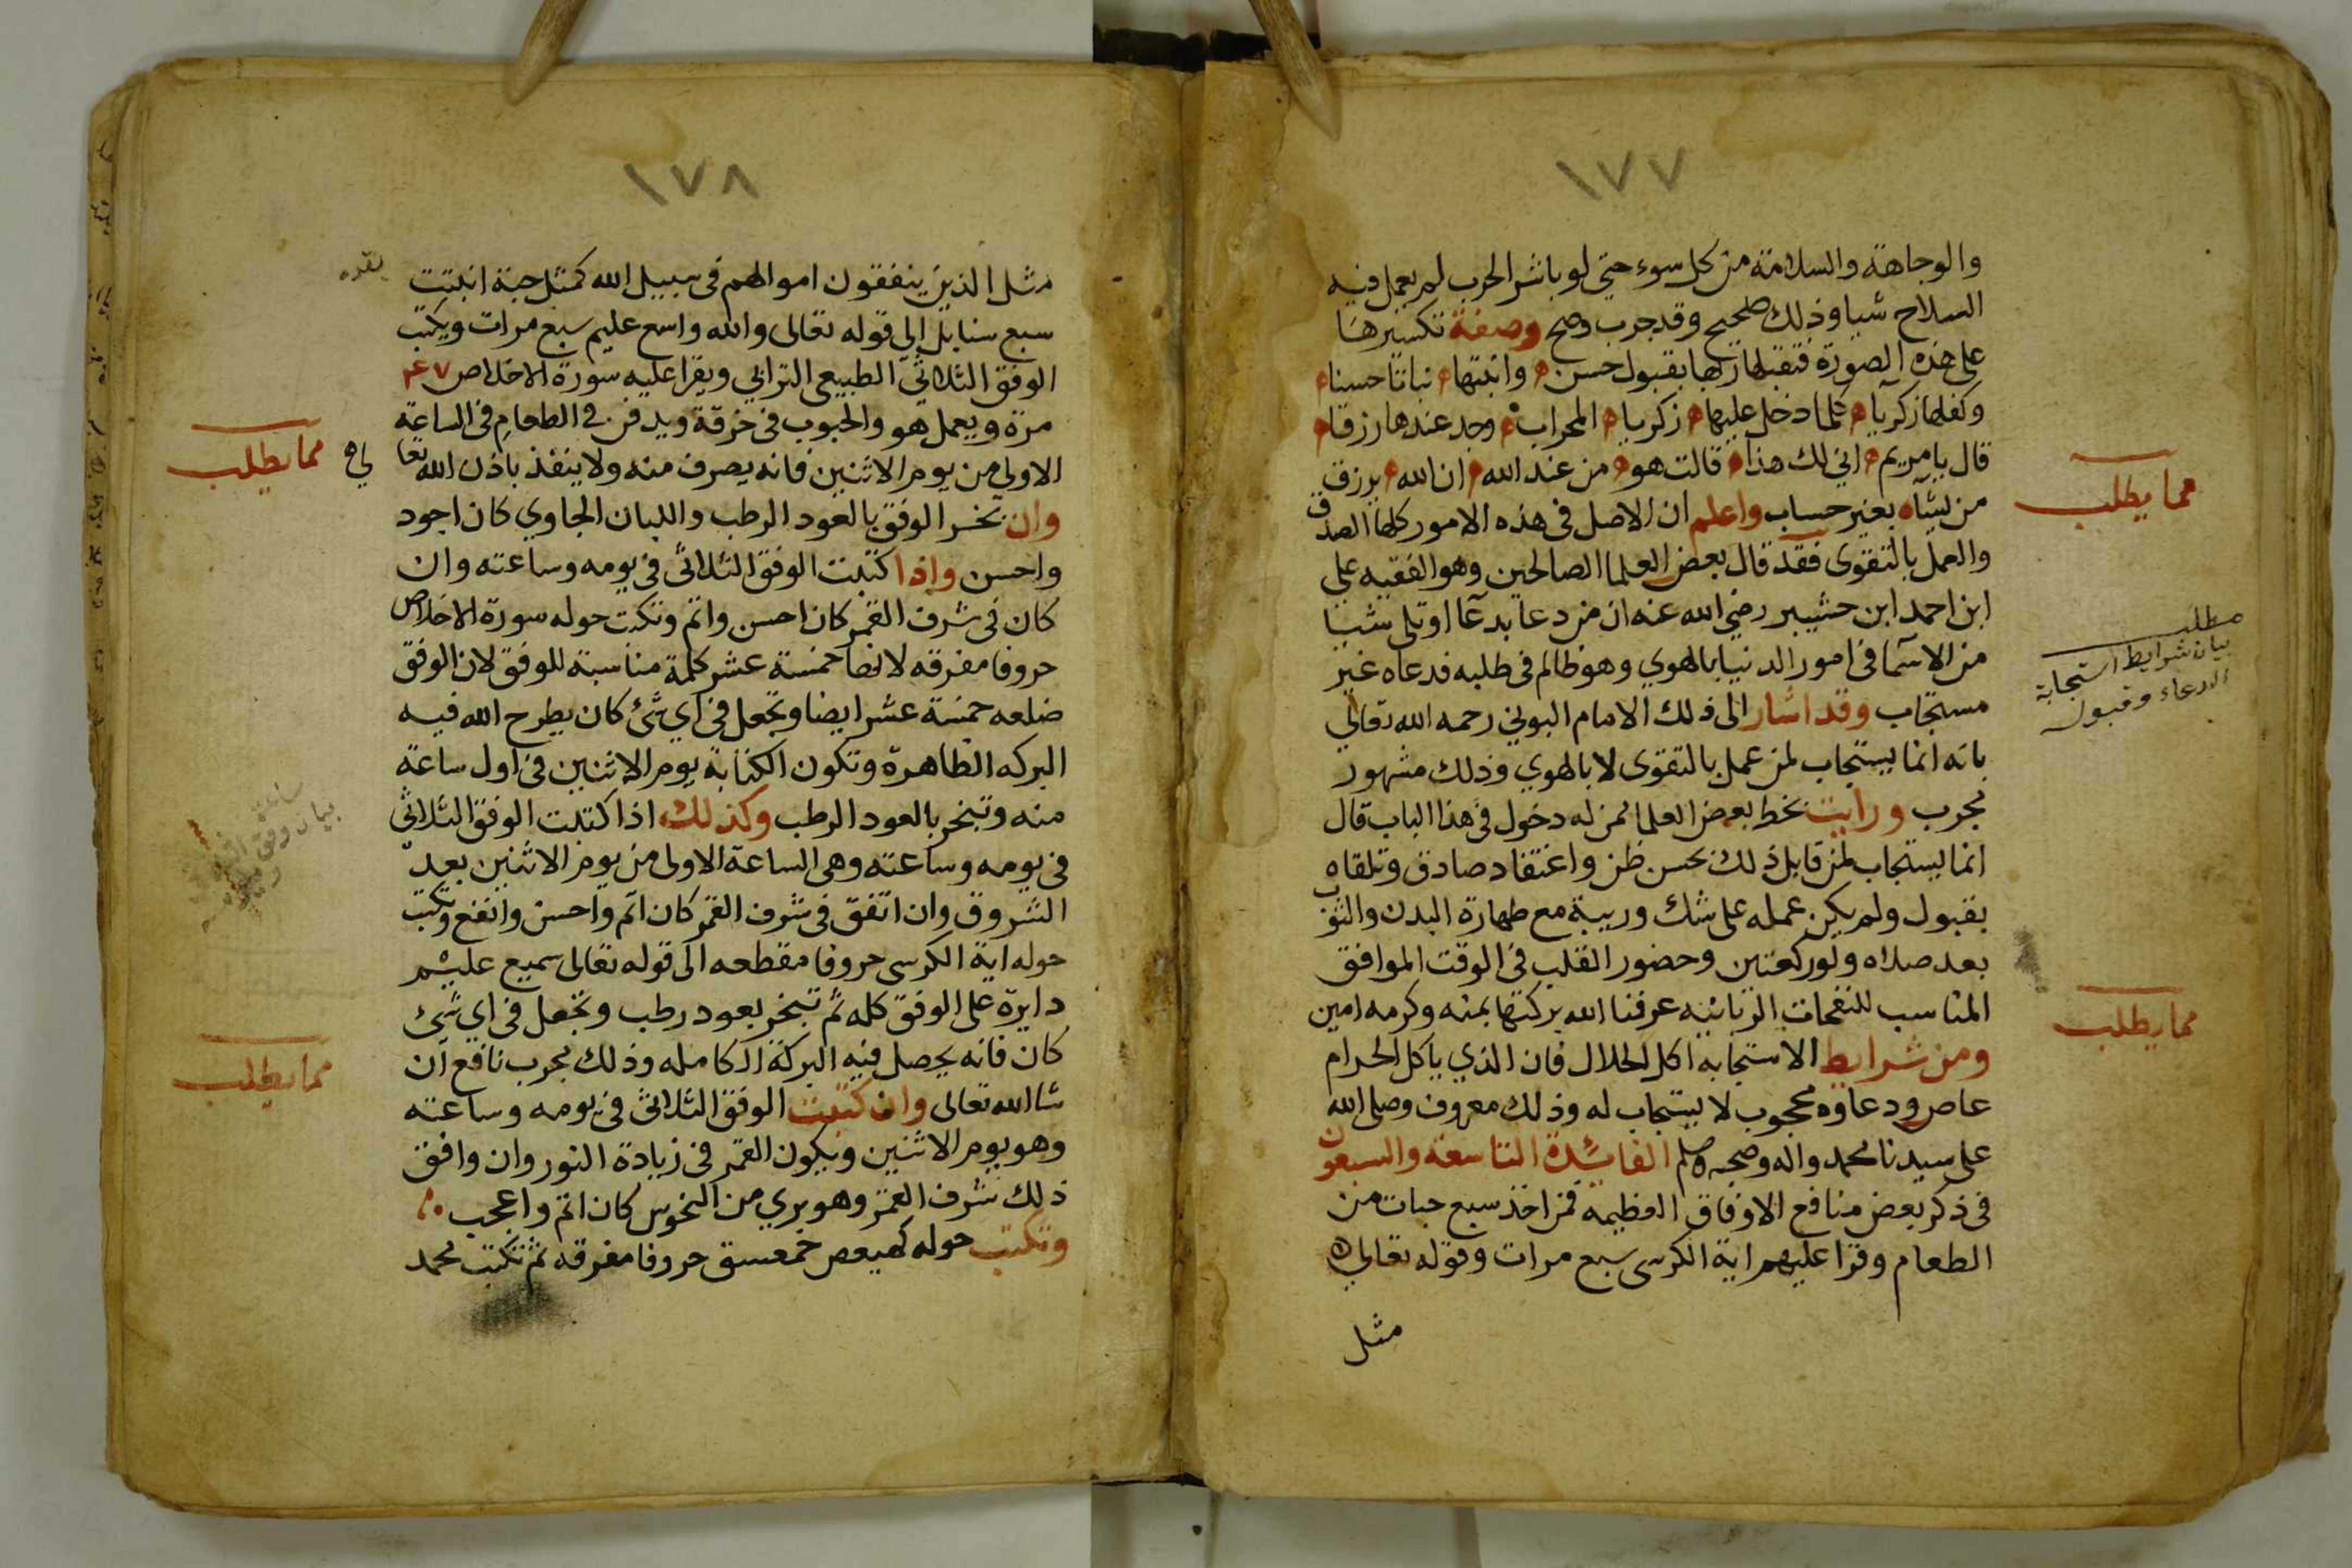 ١٧٧
والوجاهة والسلامة من كل سوء حتى لو باشر الحرب لم يعمل فيه
السلاح شيا وذلك صحيح وقد جرب وصح وصفة تكسيرها
على هذه الصورة فتقبلها ربها بقبول حسن وانبتها نباتا حسنا
وكفلها زكريا كلما دخل عليها زكريا المحراب وجد عندها رزقا
قال يا مريم انى لك هذا قالت هو من عند الله ان الله يرزق
مما يطلب
من يشاء بغير حساب واعلم ان الاصل فى هذه الامور كلها الصدق
والعمل بالتقوى فقد قال بعض العلما الصالحين وهو الفقيه على
ابن احمد ابن حشيبر رضي الله عنه ان من دعا بدعا او تلى شيا
مطلب
بيان شرايط استجابة
الدعاء وقبوله
من الاسما فى امور الدنيا بالهوي وهو ظالم فى طلبه فدعاه غير
مستجاب وقد اشار الى ذلك الامام البوني رحمه الله تعالى
بانه انما يستجاب لمن عمل بالتقوى لا بالهوي وذلك مشهور
مجرب ورايت بخط بعض العلما ممن له دخول فى هذا الباب قال
انما يستجاب لمن قابل ذلك بحسن ظن واعتقاد صادق وتلقاه
بقبول ولم يكن عمله على شك وريبة مع طهارة البدن والثوب
بعد صلاه ولو ركعتين وحضور القلب فى الوقت الموافق
المناسب للنفحات الربانيه عرفنا الله بركتها بمنه وكرمه امين
مما يطلب
ومن شرايط الاستجابة اكل الحلال فان الذي ياكل الحرام
عاص ودعاوه محجوب لا يستجاب له وذلك معروف وصلى الله
على سيدنا محمد واله وصحبه وسلم الفائدة التاسعة والسبعون
فى ذكر بعض منافع الاوفاق العظيمه فمن اخذ سبع حبات من
الطعام وقرا عليهم اية الكرسى سبع مرات وقوله تعالى
مثل
١٧٨
مثل الذين ينفقون اموالهم فى سبيل الله كمثل حبة انبتت
سبع سنابل الى قوله تعالى والله واسع عليم سبع مرات ويكتب
الوفق الثلاثي الطبيعى الترابي ويقرا عليه سورة الاخلاص
مرة ويعمل هو والحبوب فى خرقة ويدفن في الطعام فى الساعة
الاولى من يوم الاثنين فانه يصرف منه ولا ينفذ باذن الله تعا
مما يطلب
وان بخر الوفق بالعود الرطب واللبان الجاوي كان اجود
واحسن واذا كتبت الوفق الثلاثى فى يومه وساعته وان
كان فى شرف القمر كان احسن واتم وتكتب حوله سورة الاخلاص
حروفا مفرقه لانها خمسة عشر كلمة مناسبة للوفق لان الوفق
ضلعه خمسة عشر ايضا وتجعل فى اي شئ كان يطرح الله فيه
البركه الظاهرة وتكون الكتابة يوم الاثنين فى اول ساعة
منه وتبخر بالعود الرطب وكذلك اذا كتبت الوفق الثلاثى
فى يومه وساعته وهى الساعة الاولى من يوم الاثنين بعد
الشروق وان اتفق فى شرف القمر كان اتم واحسن وانفع وتكتب
حوله اية الكرسى حروفا مقطعه الى قوله تعالى سميع عليم
دايرة على الوفق كله ثم تبخر بعود رطب وتجعل فى اي شئ
كان فانه يحصل فيه البركة الكامله وذلك مجرب نافع ان
مما يطلب
شا الله تعالى وان كتبت الوفق الثلاثى فى يومه وساعته
وهو يوم الاثنين ويكون القمر فى زيادة النور وان وافق
ذلك شرف القمر وهو بري من النحوس كان اتم واعجب
وتكتب حوله كهيعص حمعسق حروفا مفرقه ثم تكتب محمد